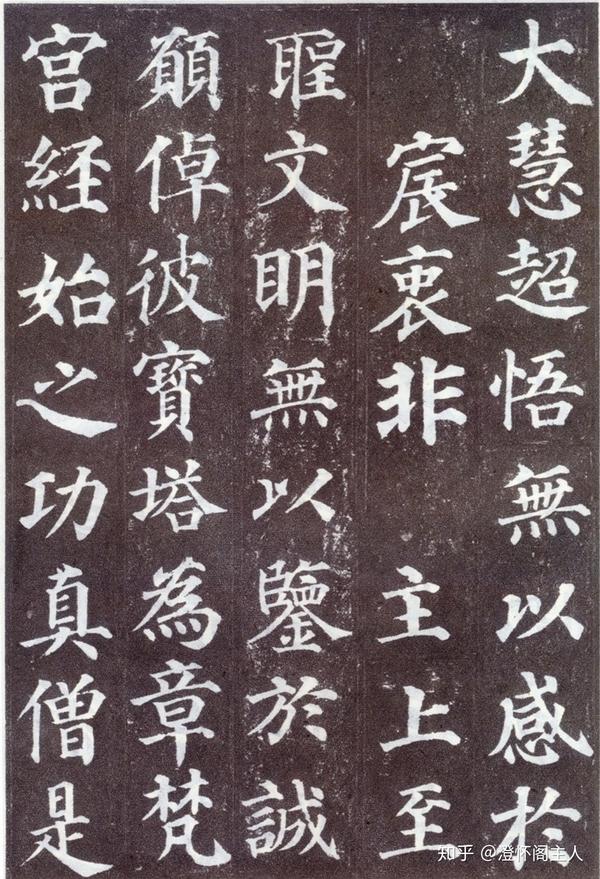 大慧超悟無以感於
宸衷非 主上至
聖文明無以鑒於誠
願倬彼寶塔為章梵
宫經始之功真僧是
知乎 @澄怀阁主人